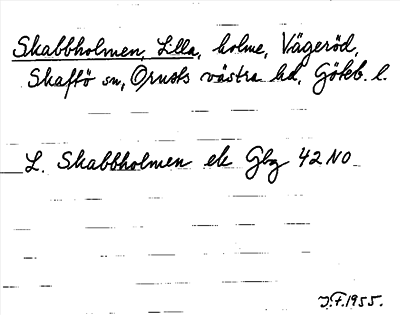 Skabbholmen, Lilla, holme, Vägeröd,
Skaftö sn, Orusts västra hd, Göteb. l.
L. Skabbholmen ek Gbg 42 NO
J.F. 1955.